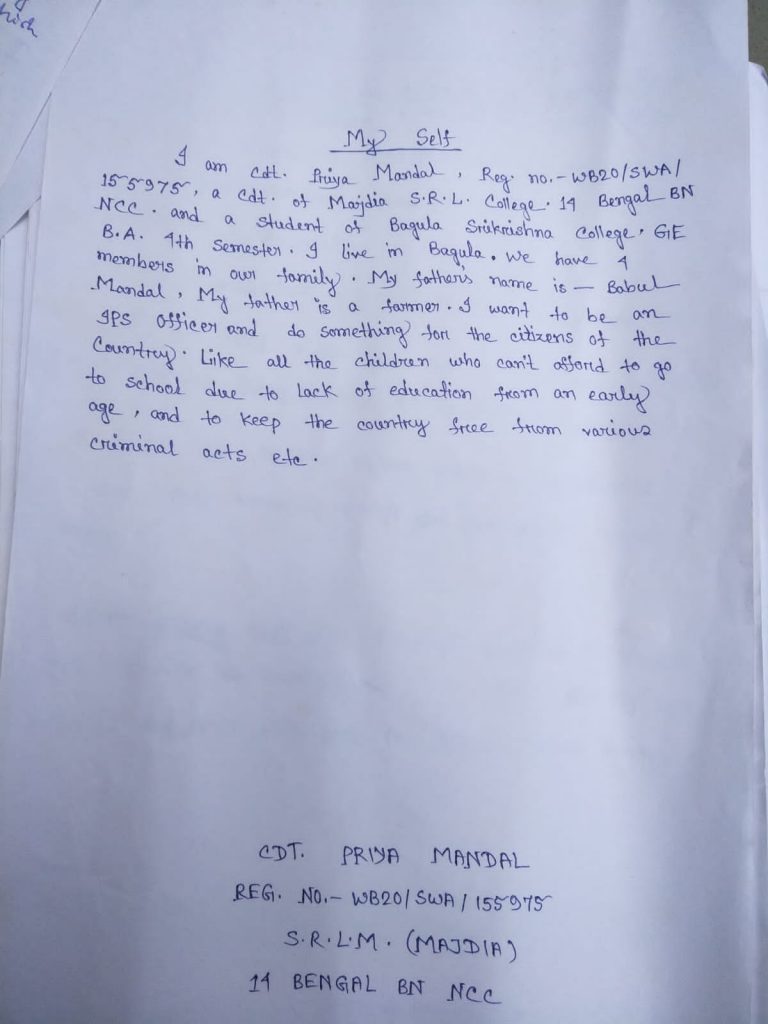 hich
My Self
I am Cdt. Priya Mandal, Reg. no.- WB20/SWA/
155975, a Cdt. of Majdia S.R.L. College. 14 Bengal BN
NCC. and a student of Bagula Srikrishna College, GE
B.A. 4th Semester. I live in Bagula. We have 4
members in our family. My father's name is — Babul
Mandal, My father is a farmer. I want to be an
IPS officer and do something for the citizens of the
Country. Like all the children who can't afford to go
to school due to lack of education from an early
age, and to keep the country free from various
criminal acts etc.
CDT. PRIYA MANDAL
REG. NO.- WB20/SWA/155975
S.R.L.M. (MAJDIA)
14 BENGAL BN NCC